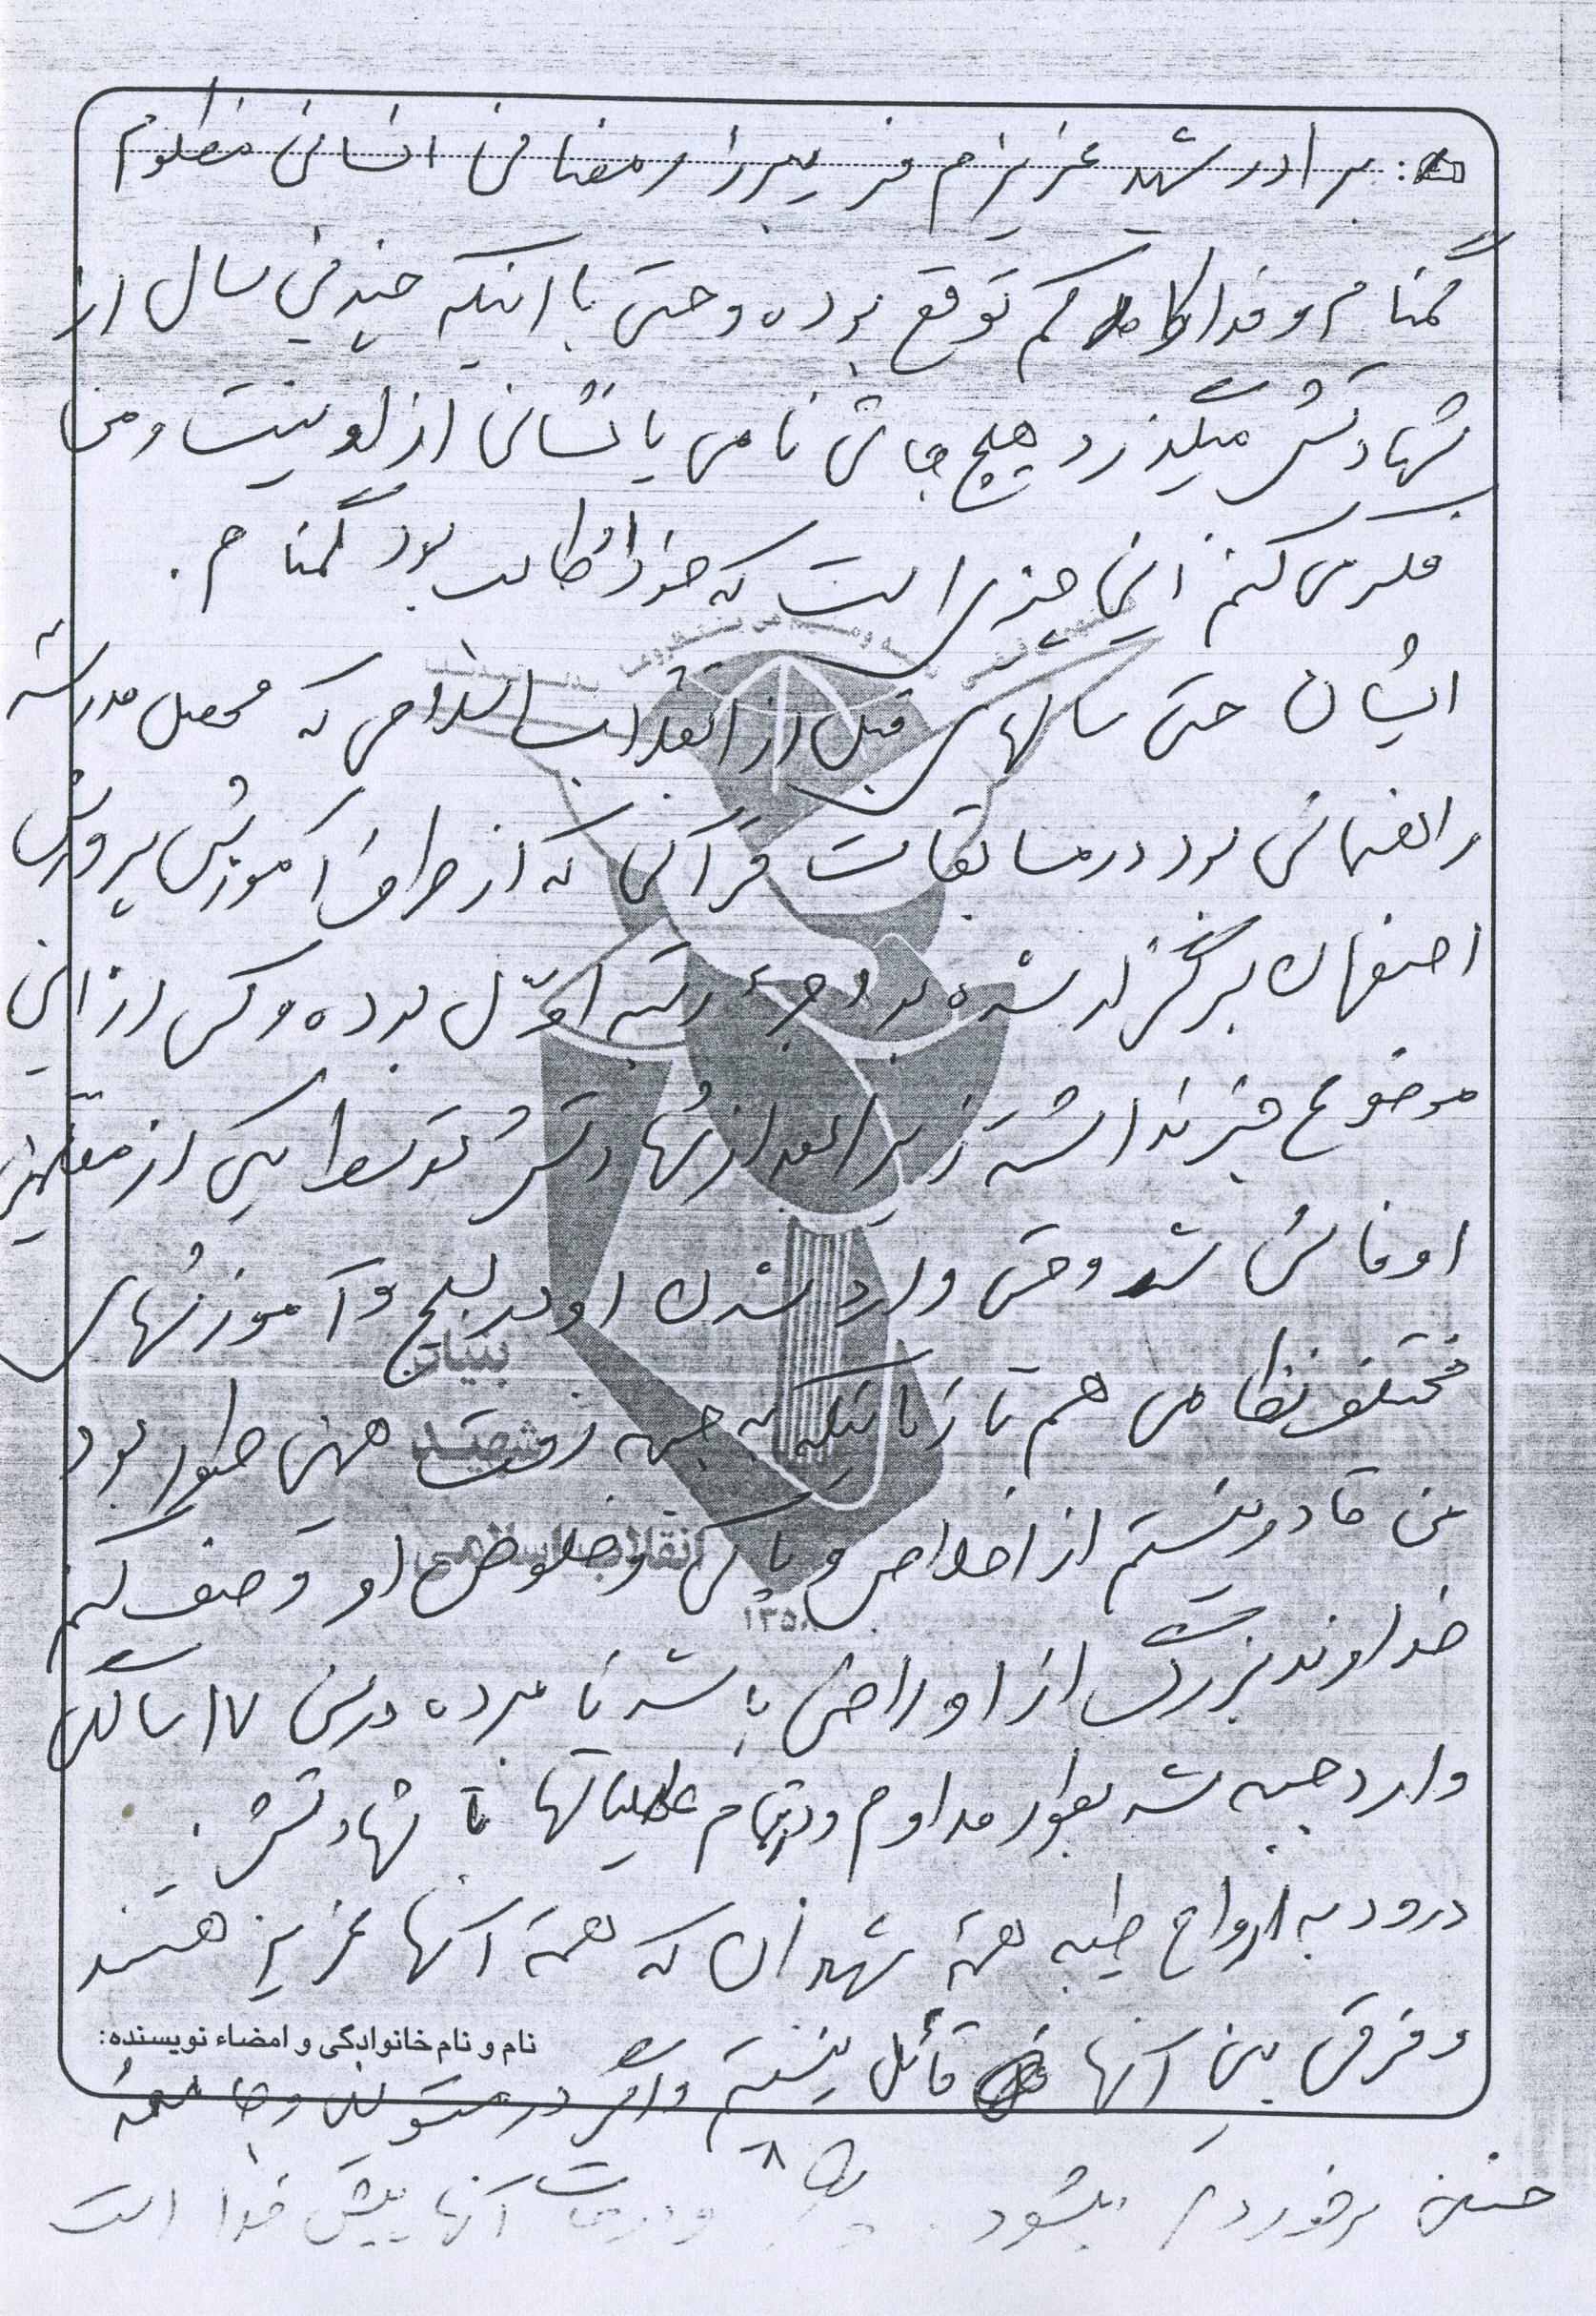 برادر شهید عزیزم فریبرز رمضانی انسانی مظلوم
گمنام و فداکار کم توقع بوده و حتی با اینکه چندین سال از
شهادتش میگذرد هیچ جائی نامی یا نشانی از او نیست و من
فکر می کنم این چیزی است که خود او طالب بود گمنام .
ایشان حتی سالهای قبل از انقلاب اسلامی که محصل مدرسه
راهنمائی بود در مسابقات قرآنی که از طرف آموزش پرورش
اصفهان برگزار شده بود جزء رتبه اوّل بوده و کسی از این
موضوع خبر نداشته زیرا بعد از شهادتش توسط یکی از معلمین
او فاش شد و حتی وارد شدن او در بسیج و آموزشهای
مختلف نظامی هم تا زمانیکه به جبهه رفت همین طور بود
من قادر نیستم از اخلاص و پاکی و خلوص او توصیف کنم
خداوند بزرگ از او راضی باشد نامبرده در سن ۱۷ سالگی
وارد جبهه شد بطور مداوم و در تمام عملیاتها تا شهادتش .
درود به ارواح طیبه همهٔ شهیدان که همهٔ آنها عزیز هستند
و فرقی بین آنها قائل نیستم و اگر در مسئولین و جامعهٔ
چنین برخوردی میشود و درجات آنها پیش خدا است
نام و نام خانوادگی و امضاء نویسنده:
بنیاد
شهید
انقلاب اسلامی
۱۳۵۸